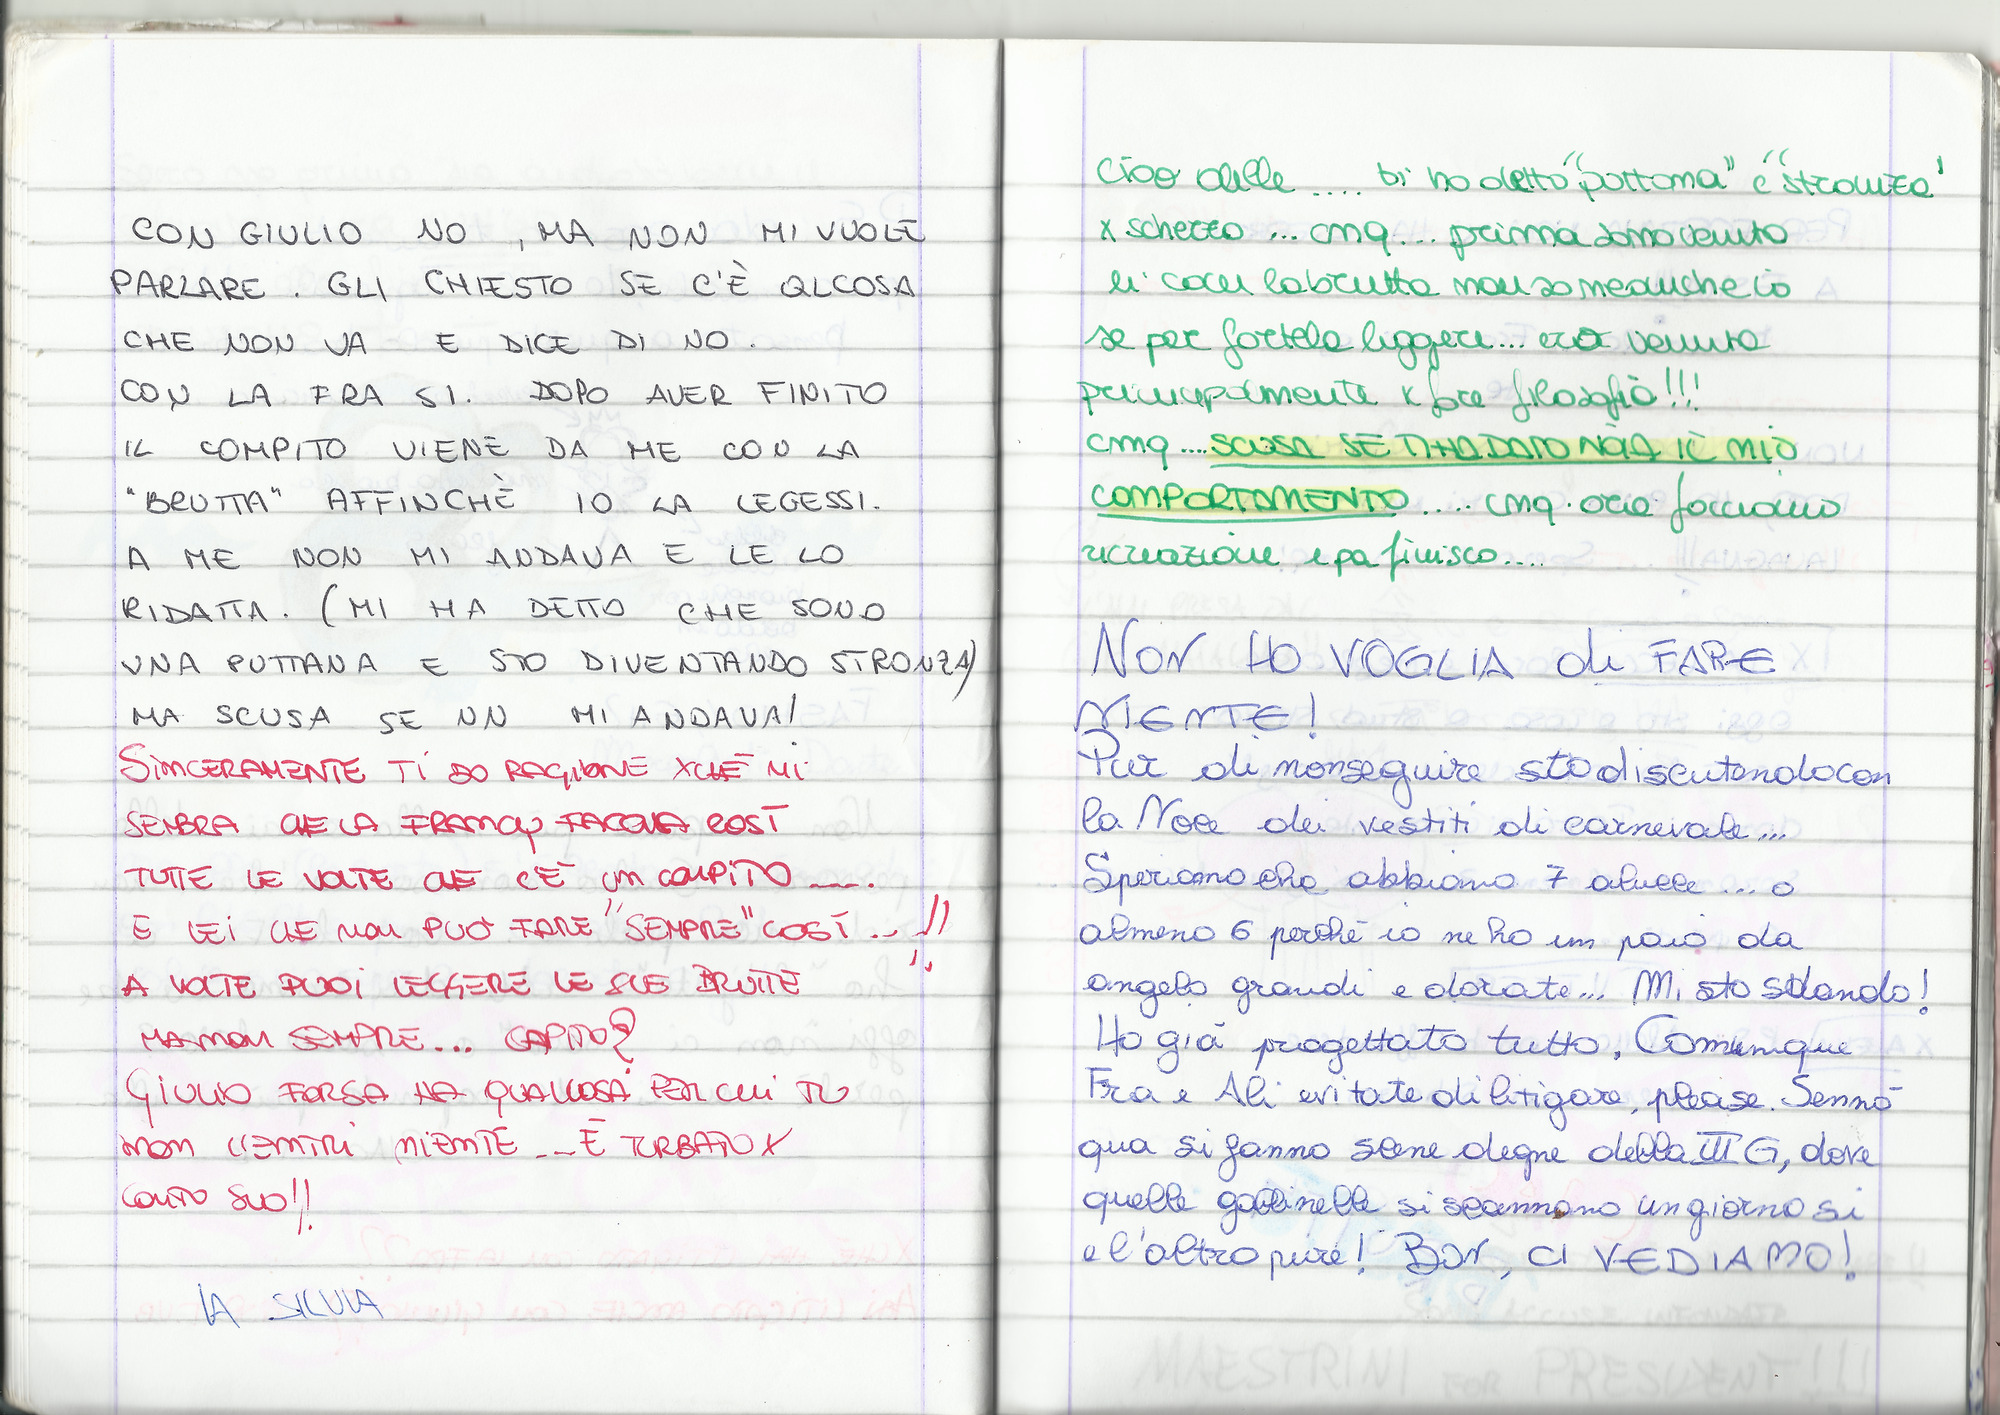 CON GIULIO NO , MA NON MI VUOLE
PARLARE . GLI CHIESTO SE C'È QLCOSA
CHE NON VA E DICE DI NO .
CON LA FRA SI. DOPO AVER FINITO
IL COMPITO VIENE DA ME CON LA
"BRUTTA" AFFINCHÈ IO LA LEGESSI.
A ME NON MI ANDAVA E LE LO
RIDATTA. (MI HA DETTO CHE SONO
UNA PUTTANA E STO DIVENTANDO STRONZA)
MA SCUSA SE UN MI ANDAVA!
SINCERAMENTE TI DO RAGIONE XCHÈ MI
SEMBRA CHE LA FRANCY FACEVA COSÌ
TUTTE LE VOLTE CHE C'È UN COMPITO ....
E LEI CHE NON PUÒ FARE "SEMPRE" COSÌ...!!
A VOLTE PUOI LEGGERE LE SUE BRUTTE
MA NON SEMPRE... CAPITO?
GIULIO FORSA HA QUALCOSA PER CUI TU
NON C'ENTRI NIENTE ... È TURBATO X
CONTO SUO!!
LA SILVIA
Ciao delle .... ti ho detto "puttana" e "stronza"
x scherzo ... cmq... prima sono venuta
lì con la brutta non so neanche io
se per fartela leggere... ero venuta
principalmente x fare filosofia!!!
cmq .... SCUSA SE TI HA DATO NOIA IL MIO
COMPORTAMENTO ..... cmq. ora facciamo
ricreazione e poi finisco....
NON HO VOGLIA di FARE
NIENTE!
Pur di non seguire sto discutendo con
la Noce dei vestiti di carnevale...
Speriamo che abbiamo 7 alucce ... o
almeno 6 perché io ne ho un paio da
angelo grandi e dorate... Mi sto sdando!
Ho già progettato tutto. Comunque
Fra e Ali evitate di litigare, please. Sennò
qua si fanno scene degne della III G, dove
quelle gallinelle si scannano un giorno si
e l'altro pure! BON, CI VEDIAMO!